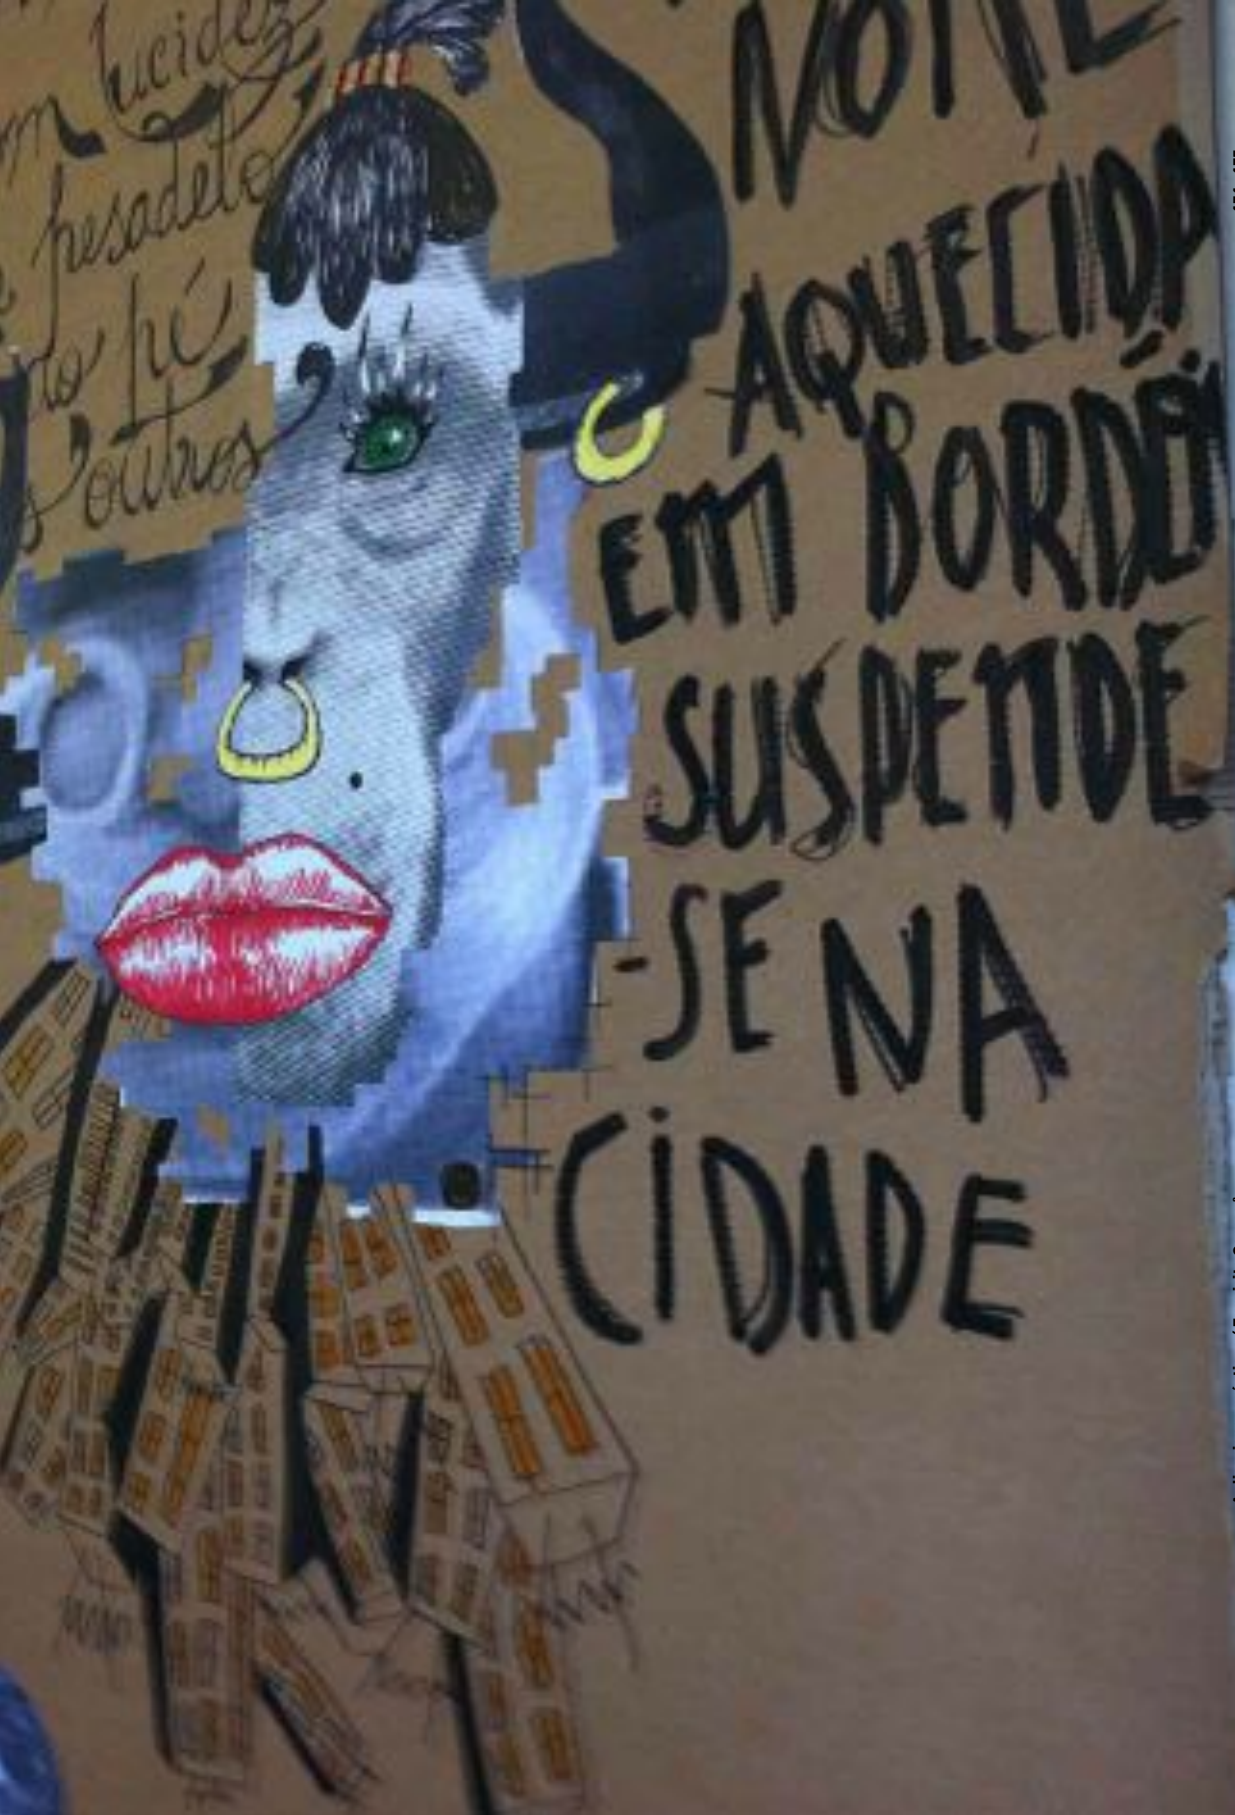 lucidez
pesadelo
pé
outros
NOITE
AQUECIDA
EM BORDÓ
SUSPENDE
-SE NA
CIDADE